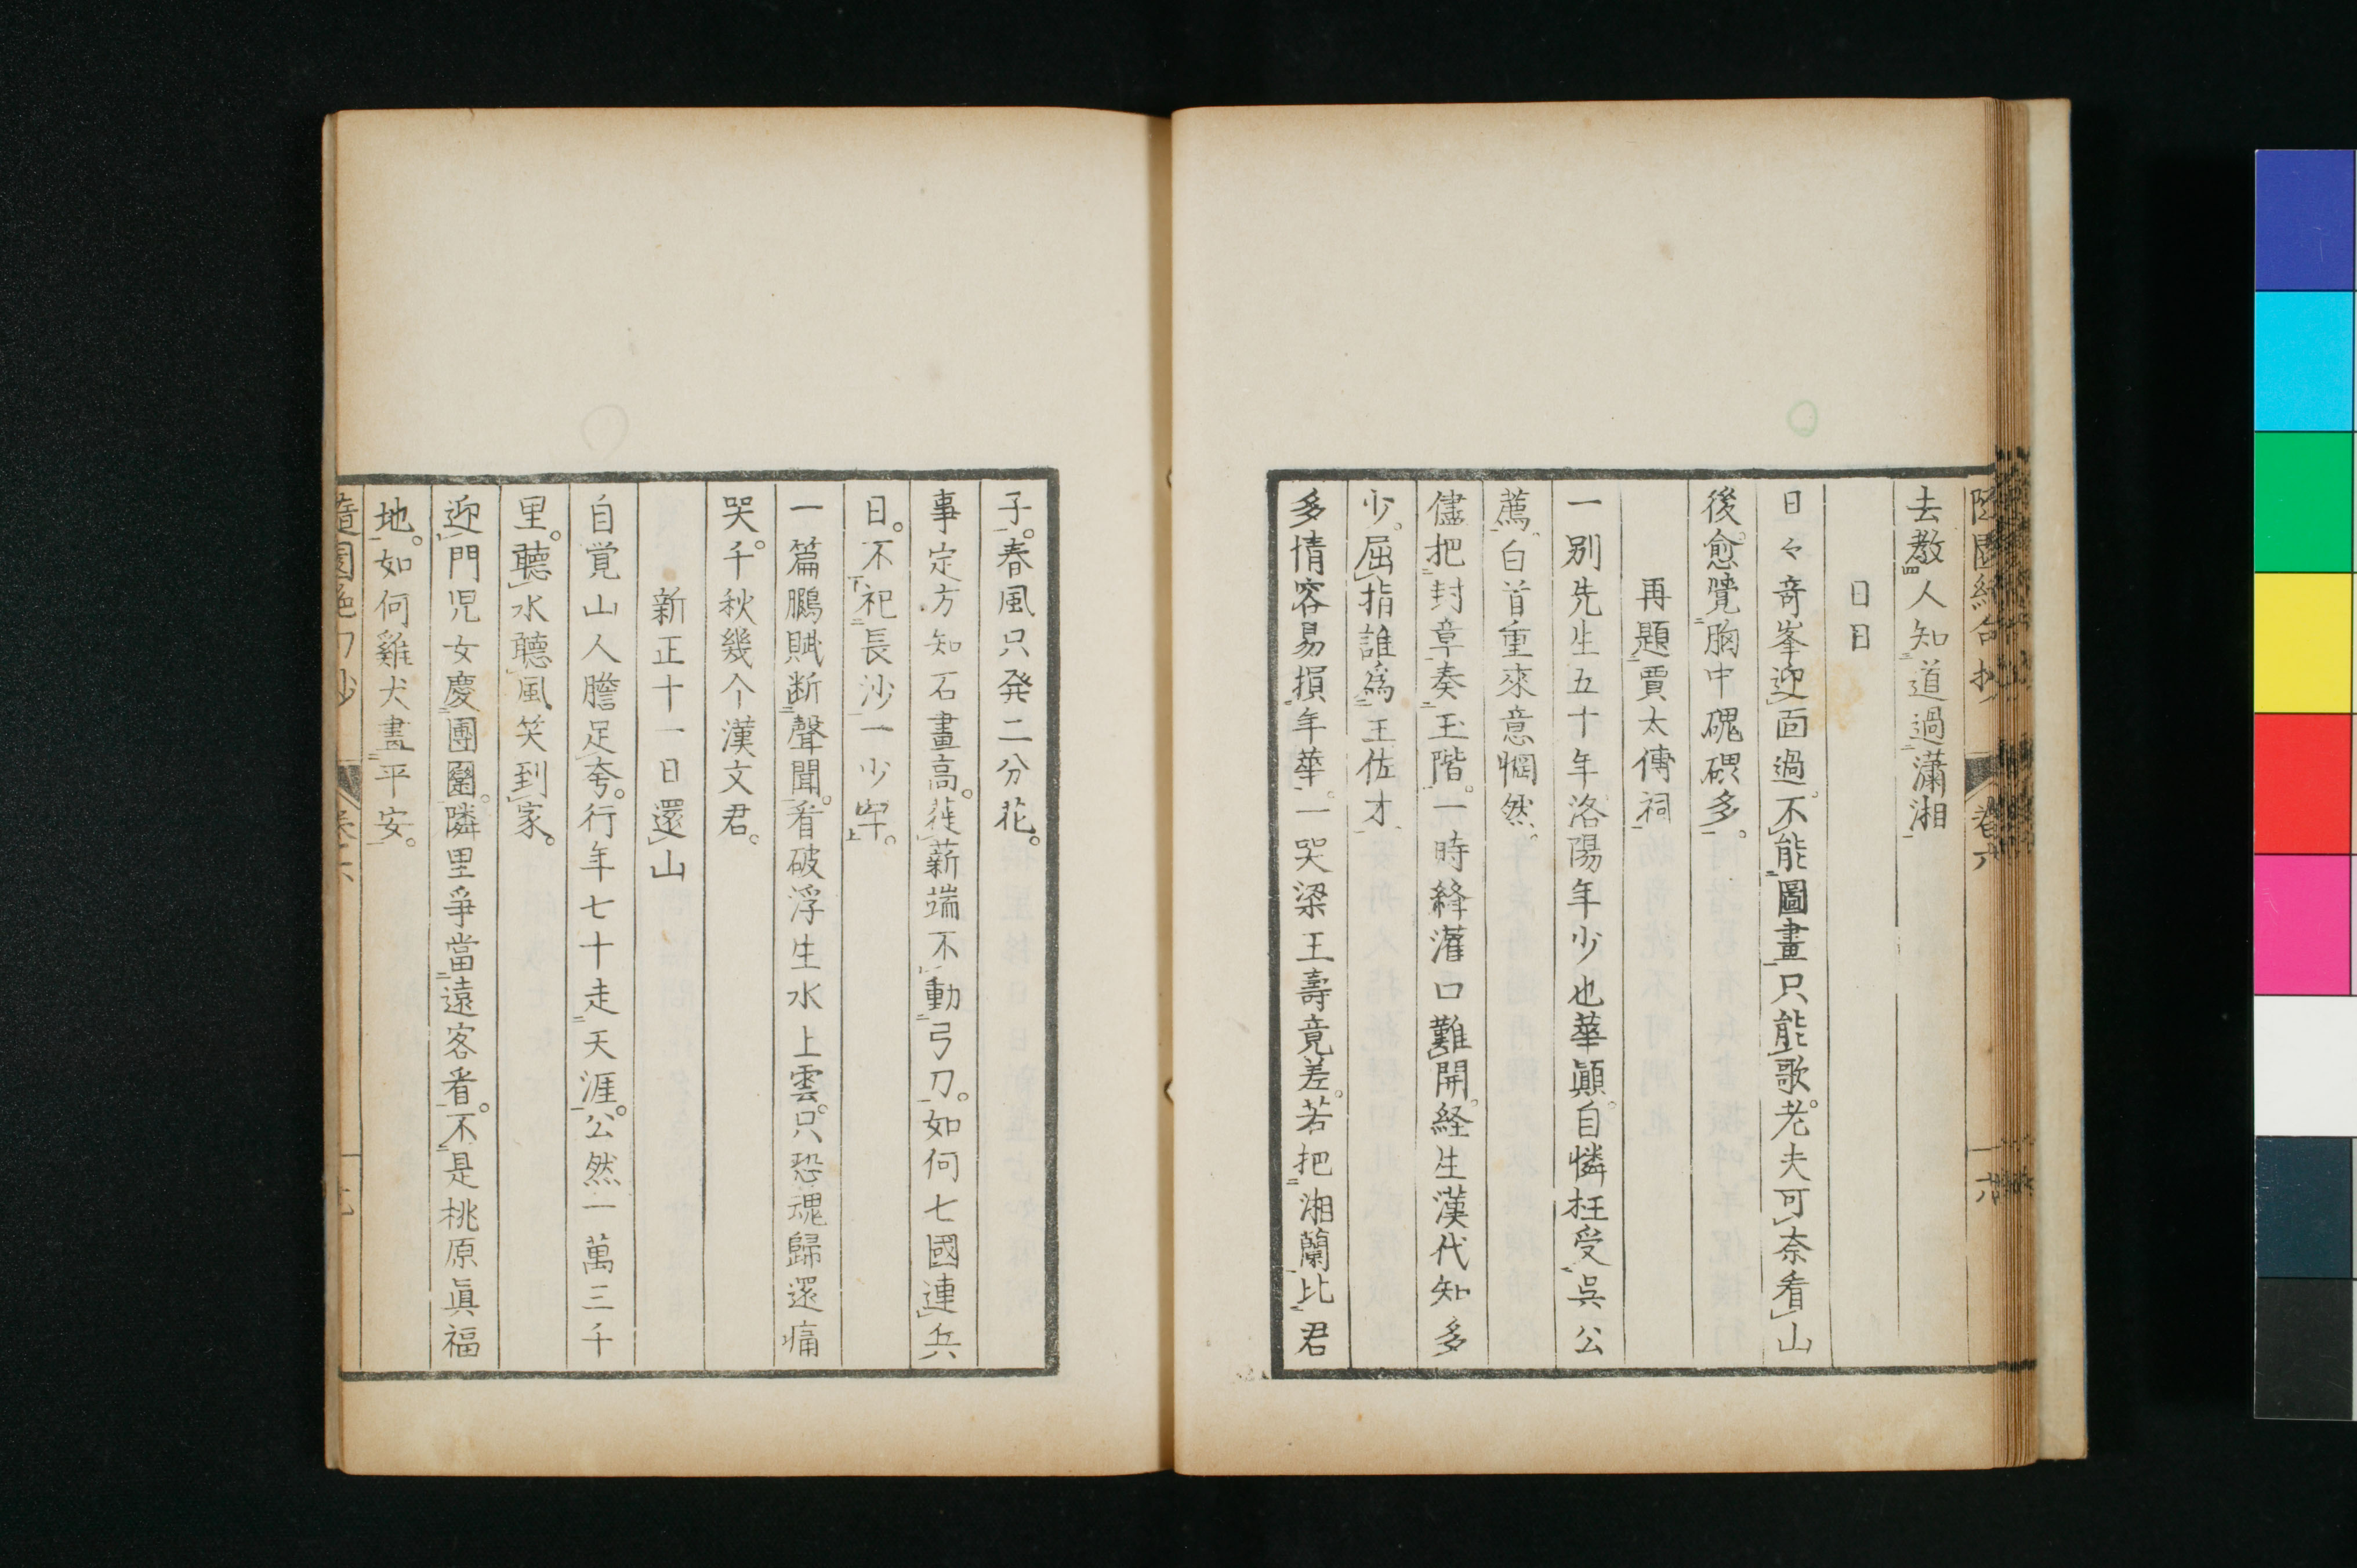 去教人知道過瀟湘
日日
日々奇峯迎面過。不能圖畫只能歌。老夫可奈看山
後愈覺胸中磈磥多。
再題賈太傳祠
一別先生五十年洛陽年少也華顚。自憐枉受吳公
薦。白首重來意惘然。
儘把封章奏玉階。一時絳灌口難開。経生漢代知多
少。屈指誰爲王佐才
多情容易損年華。一哭梁王壽竟差。若把湘蘭比君
子。春風只発二分花。
事定方知石畫高。徙薪端不動弓刀。如何七國連兵
日。不祀長沙一少牢。
一篇鵩賦断聲聞。看破浮生水上雲。只恐魂歸還痛
哭。千秋幾个漢文君。
新正十一日還山
自覚山人膽足夸。行年七十走天涯。公然一萬三千
里。聽水聽風笑到家。
迎門児女慶團圞。隣里爭當遠客看。不是桃原眞福
地。如何雞犬盡平安。